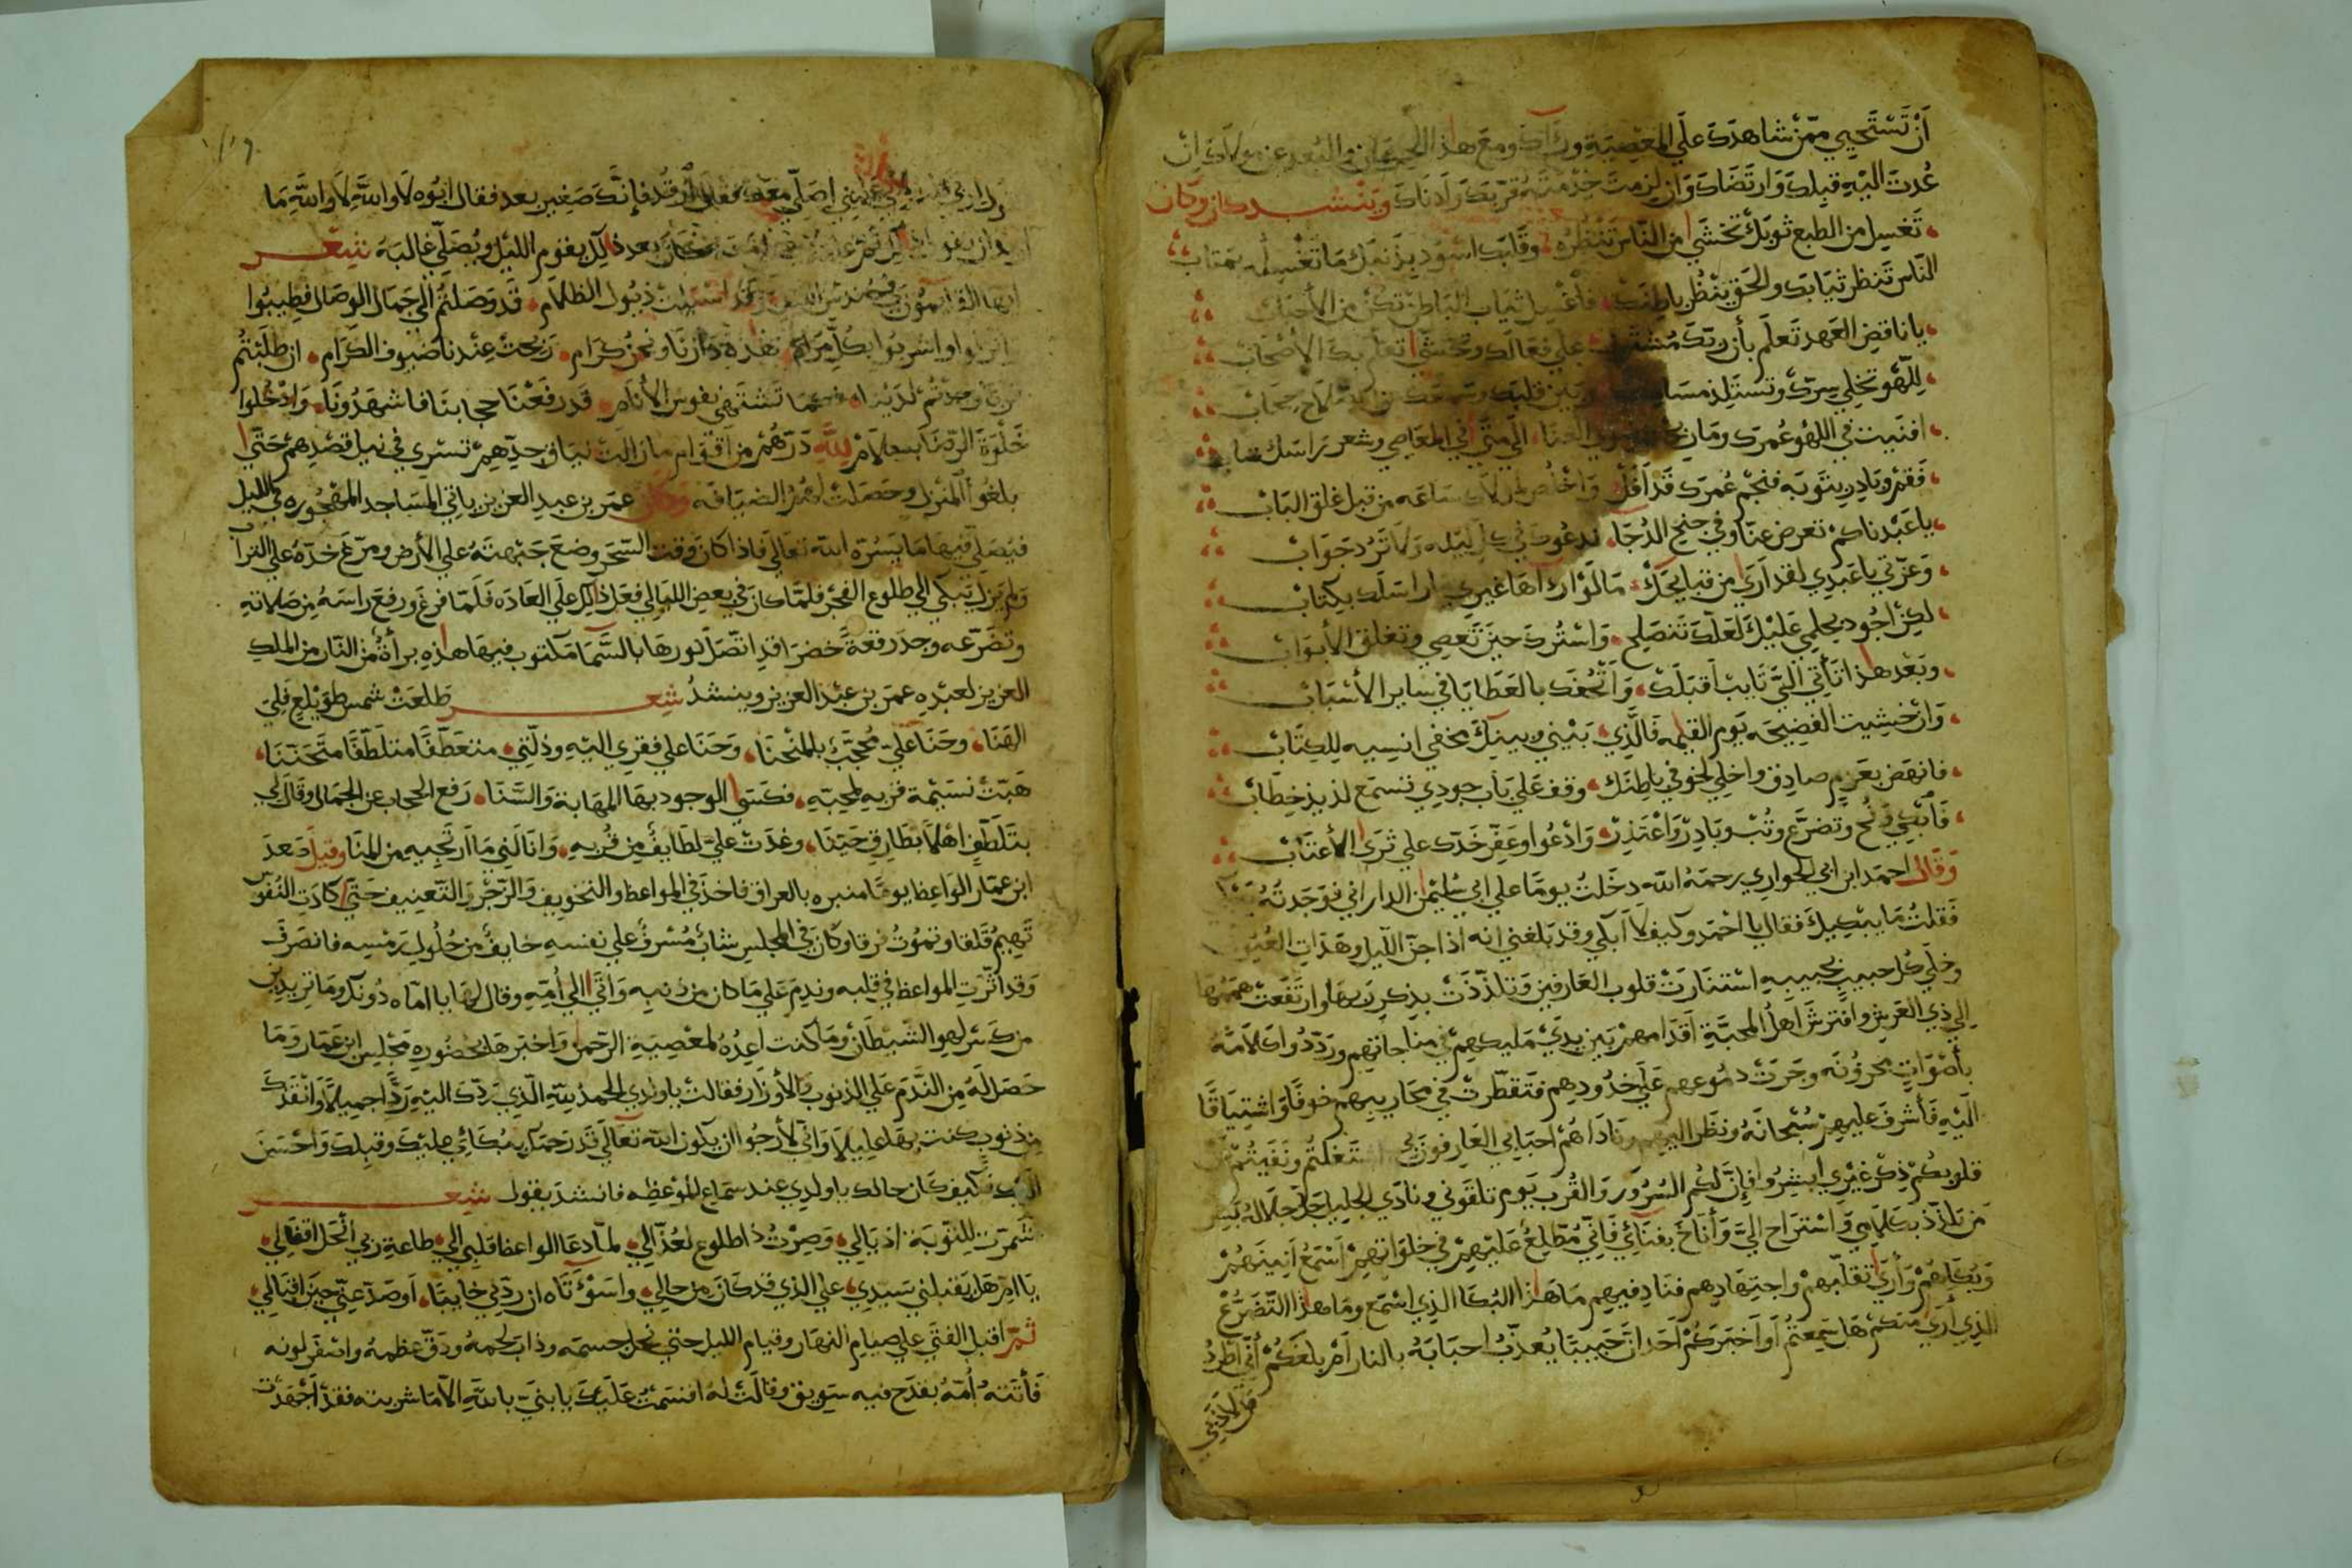 أن تستحيي ممن شاهدك على المعصية ورآك ومع هذا
عدت اليه قبلك وارتضاك وان لزمت خدمته قربك وادناك وينشد كان وكان
تغسل من الطبع ثوبك تخشى من الناس تنظره وقلبك اسود بذنبك ما تغسله بمتاب
الناس تنظر ثيابك والحق ينظر باطنك فاغسل ثياب الباطن تكن من الأحباب
يا ناقض العهد تعلم بأن ربك على فعالك وتخشى تعلم بك الأصحاب
للهو تخلي سرك وتستلذ وبين قلبك حجاب
افنيت في اللهو عمرك الى متى في المعاصي وشعر راسك شاب
فقم وبادر بتوبه فنجم عمرك قد أفل واخلص ساعه من قبل غلق الباب
يا عبدنا كم تعرض عنا وفي جنح الدجا ندعوك في كل ليله ولا ترد جواب
وعزتي يا عبدي لقد ارى من قبايحك ما لو اراها غيري ما راسلك بكتاب
لكن اجود بحلمي عليك لعلك تنصلح واسترك حين تعصي وتغلق الأبواب
وبعد هذا تأتي الي تايب اقبلك واتحفك بالعطايا في ساير الأسباب
وان خشيت الفضيحه يوم القيمه فالذي بيني وبينك مخفي انسيه للكتاب
فانهض بعزم صادق واخلي لخوفي باطنك وقف على باب جودي تسمع لذيذ خطاب
فابكي ونح وتضرع وتب وبادر واعتذر وادعوا وعفر خدك على ثرى الأعتاب
وقال احمد ابن ابي الحواري رحمه الله دخلت يوما على ابي سليمن الداراني فوجدته
فقلت ما يبكيك فقال يا احمد وكيف لا ابكي وقد بلغني انه اذا جن الليل وهدات العيون
وخلي كل حبيب بحبيبه استنارت قلوب العارفين وتلذذت بذكر ربها وارتفعت هممها
الى ذي العرش وافترش اهل المحبة اقدامهم بين يدي مليكهم في مناجاتهم ورددوا كلامه
بأصوات محزونه وجرت دموعهم على خدودهم فتقطرت في محاريبهم خوفا واشتياقا
اليه فأشرف عليهم سبحانه ونظر اليهم وناداهم احبابي العارفون بي اشتغلتم ونفيتم عن
قلوبكم ذكر غيري ابشروا فإن لكم السرور والقرب يوم تلقوني ونادي الجليل جل جلاله
من تلذذ بكلامي واستراح الي وأناخ بفنائي فاني مطلع عليهم في خلواتهم اسمع انينهم
وبكاهم وأرى تقلبهم واجتهادهم فناد فيهم ما هذا البكا الذي اسمع وما هذا التضرع
الذي ارى منكم هل سمعتم او اخبركم احد ان حبيبا يعذب احبابه بالنار ام بلغكم أني اطرد
من لاذ بي
اصلي معك فقال ارقد فإنك صغير بعد فقال ابوه لا والله لا والله ما
بعد ذلك يقوم الليل ويصلي غالبه شعر
ايها القائمون في حندس الليل وقد اسبلت ذيول الظلام قد وصلتم الى جمال الوصال فطيبوا
واشربوا بكل مرام فهذه دارنا ونحن كرام ربحت عندنا ضيوف الكرام ان طلبتم
وجدتم لدينا ما تشتهي نفوس الأنام قد رفعنا حجابنا فاشهدونا وادخلوا
خلوة الرضا بسلام لله درهم من أقوام ما زالت نياق جدهم تسري في نيل قصدهم حتى
بلغوا المنزل وحصلت لهم الضيافه وكان عمر بن عبد العزيز ياتي المساجد المهجوره في الليل
فيصلي فيها ما يسره الله تعالى فاذا كان وقت السحر وضع جبهته على الأرض ومرغ خده على التراب
ولم يزل يبكي الى طلوع الفجر فلما كان في بعض الليالي فعل ذلك على العاده فلما فرغ ورفع راسه من صلاته
وتضرعه وجد رقعة خضرا قد اتصل نورها بالسما مكتوب فيها هذه براة من النار من الملك
العزيز لعبده عمر بن عبد العزيز وينشد شعر طلعت شمس طويلع فلي
الهنا وحنا علي محجب بالمنحنا وحنا علي فقري اليه وذلتي متعطفا متلطفا متحننا
هبت نسيمة قربه لمحبه فكسى الوجود بها المهابة والسنا رفع الحجاب عن الجمال وقال لي
بتلطف اهلا بطارق حينا وغدت علي لطايف من قربه وانالني ما ارتجيه من المنا وقيل صعد
ابن عمار الواعظ يوما منبره بالعراق فاخذ في المواعظ والتخويف والزجر والتعنيف حتى كادت النفوس
تهيم قلقا وتموت فرقا وكان في المجلس شاب مسرف على نفسه خايف من حلول رمسه فانصرف
وقد اثرت المواعظ في قلبه وندم على ما كان من ذنبه واتى الى أمه وقال لها يا اماه دونك وما تريدين
من كسر لهو الشيطان وما كنت اعده لمعصية الرحمن واخبرها بحضوره مجلس ابن عمار وما
حصل له من الندم على الذنوب والأوزار فقالت يا ولدي الحمد لله الذي ردك اليه ردا جميلا وانقذك
من ذنوب كنت بها عليلا واني لأرجوا ان يكون الله تعالى قد رحمك ببكائي عليك وقبلك واحسن
اليك فكيف كان حالك يا ولدي عند سماع الموعظه فانشد يقول شعر
شمرت للتوبة اذيالي وصرت ذا طلوع لعذالي لما دعا الواعظ قلبي الى طاعة ربي انحل اقفالي
يا ام هل يقبلني سيدي على الذي قد كان من حالي واسؤتاه ان ردني خايبا او صد عني حين اقبالي
ثم اقبل الفتى على صيام النهار وقيام الليل حتى نحل جسمه وذاب لحمه ودق عظمه واصفر لونه
فأتته أمه بقدح فيه سويق وقالت له اقسمت عليك يا بني بالله الا ما شربته فقد اجهدت